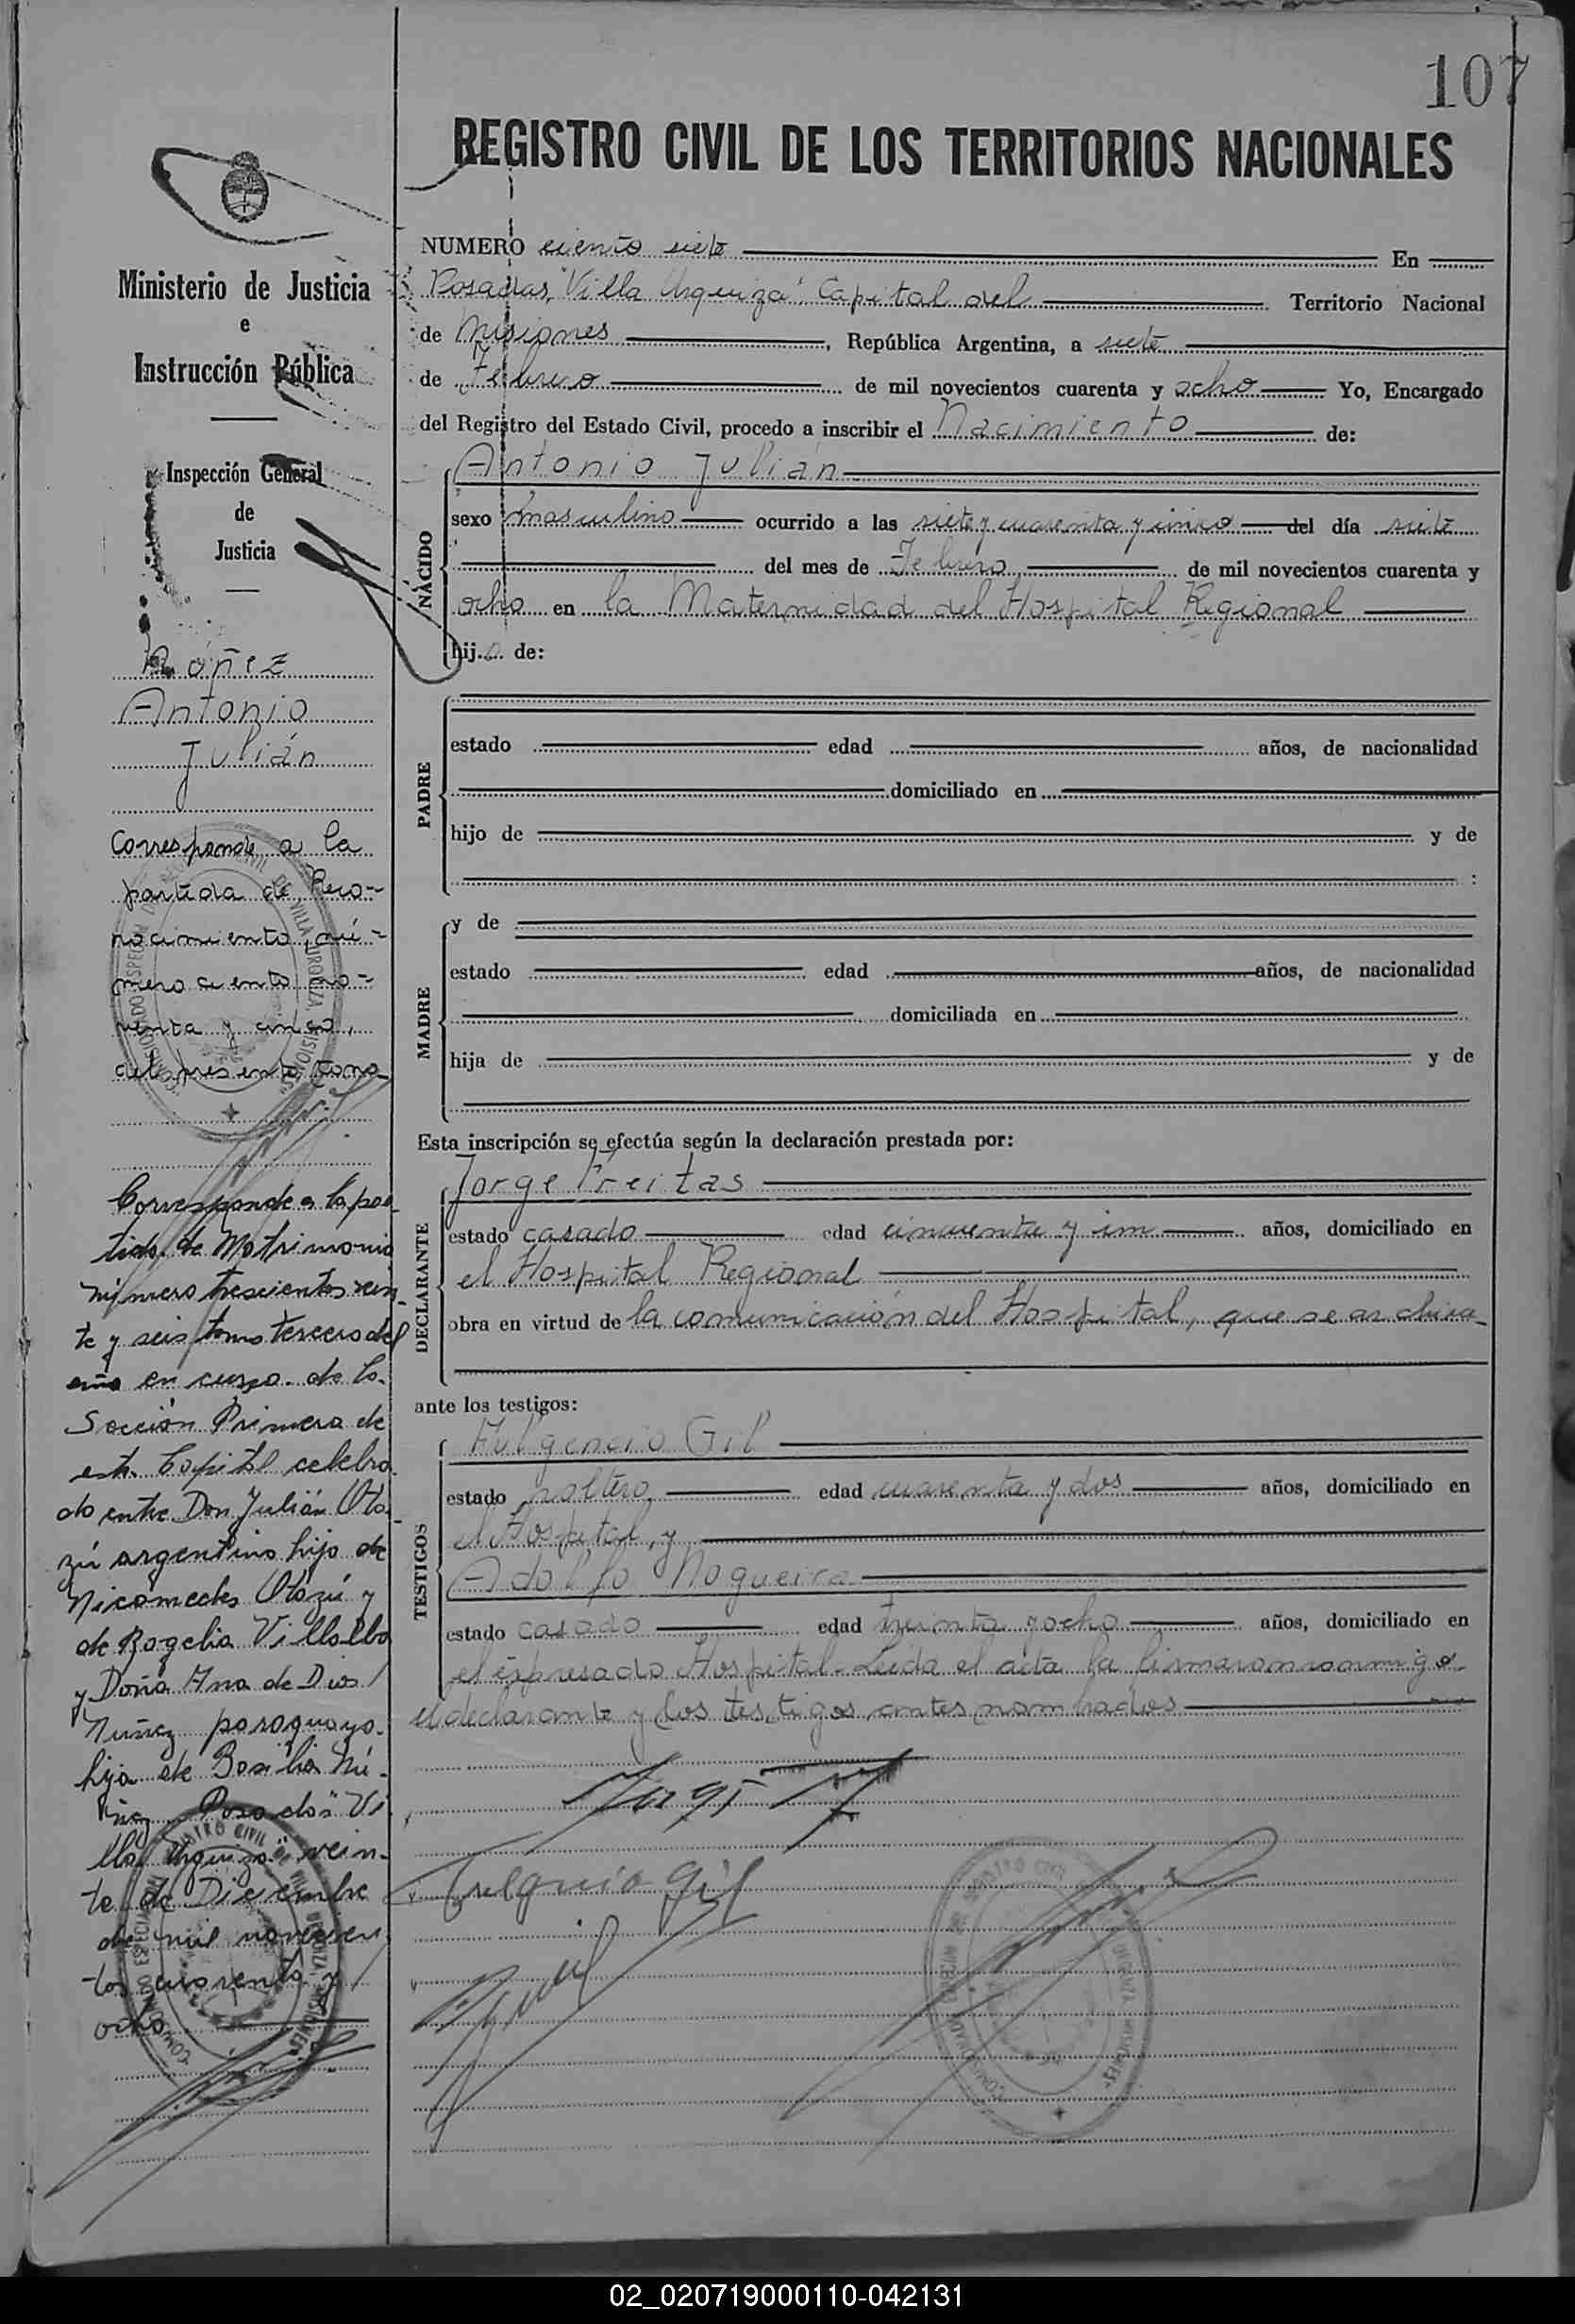 107
REGISTRO CIVIL DE LOS TERRITORIOS NACIONALES
NUMERO ciento siete En
Posadas, "Villa Urquiza". Capital del Territorio Nacional
de Misiones, República Argentina, a siete
de Febrero de mil novecientos cuarenta y ocho Yo, Encargado
del Registro del Estado Civil, procedo a inscribir el Nacimiento de:
NACIDO
Antonio Julián
sexo masculino ocurrido a las siete y cuarenta y cinco del día siete
del mes de Febrero de mil novecientos cuarenta y
ocho en la Maternidad del Hospital Regional
hijo de:
PADRE
estado edad años, de nacionalidad
domiciliado en
hijo de y de
:
MADRE
y de
estado edad años, de nacionalidad
domiciliada en
hija de y de
Esta inscripción se efectúa según la declaración prestada por:
DECLARANTE
Jorge Freitas
estado casado edad cincuenta y un años, domiciliado en
el Hospital Regional
obra en virtud de la comunicación del Hospital, que se archiva
ante los testigos:
TESTIGOS
Fulgencio Gil
estado soltero edad cuarenta y dos años, domiciliado en
el Hospital, y
Adolfo Nogueira
estado casado edad treinta y ocho años, domiciliado en
el expresado Hospital. Leída el acta la firmaron conmigo
el declarante y los testigos antes nombrados
Ministerio de Justicia
e
Instrucción Pública
Inspección General
de
Justicia
Antonio
Julián
Corresponde a la
partida de Reco-
nocimiento nú-
mero ciento no-
venta y cinco,
del presente tomo
Corresponde a la par-
tida de Matrimonio
número trescientos vein-
te y seis tomo tercero del
año en curso de la
Sección Primera de
esta Capital celebra-
do entre Don Julián Oto-
zú argentino hijo de
Nicomedes Otozú y
de Rogelia Villalba
y Doña Ana de Dios
Nuñez paraguaya
hija de Basilia Nú-
ñez. Posadas "Vi
lla Urquiza" vein-
te de Diciembre
de mil novecien
tos cuarenta y
ocho
02_020719000110-042131